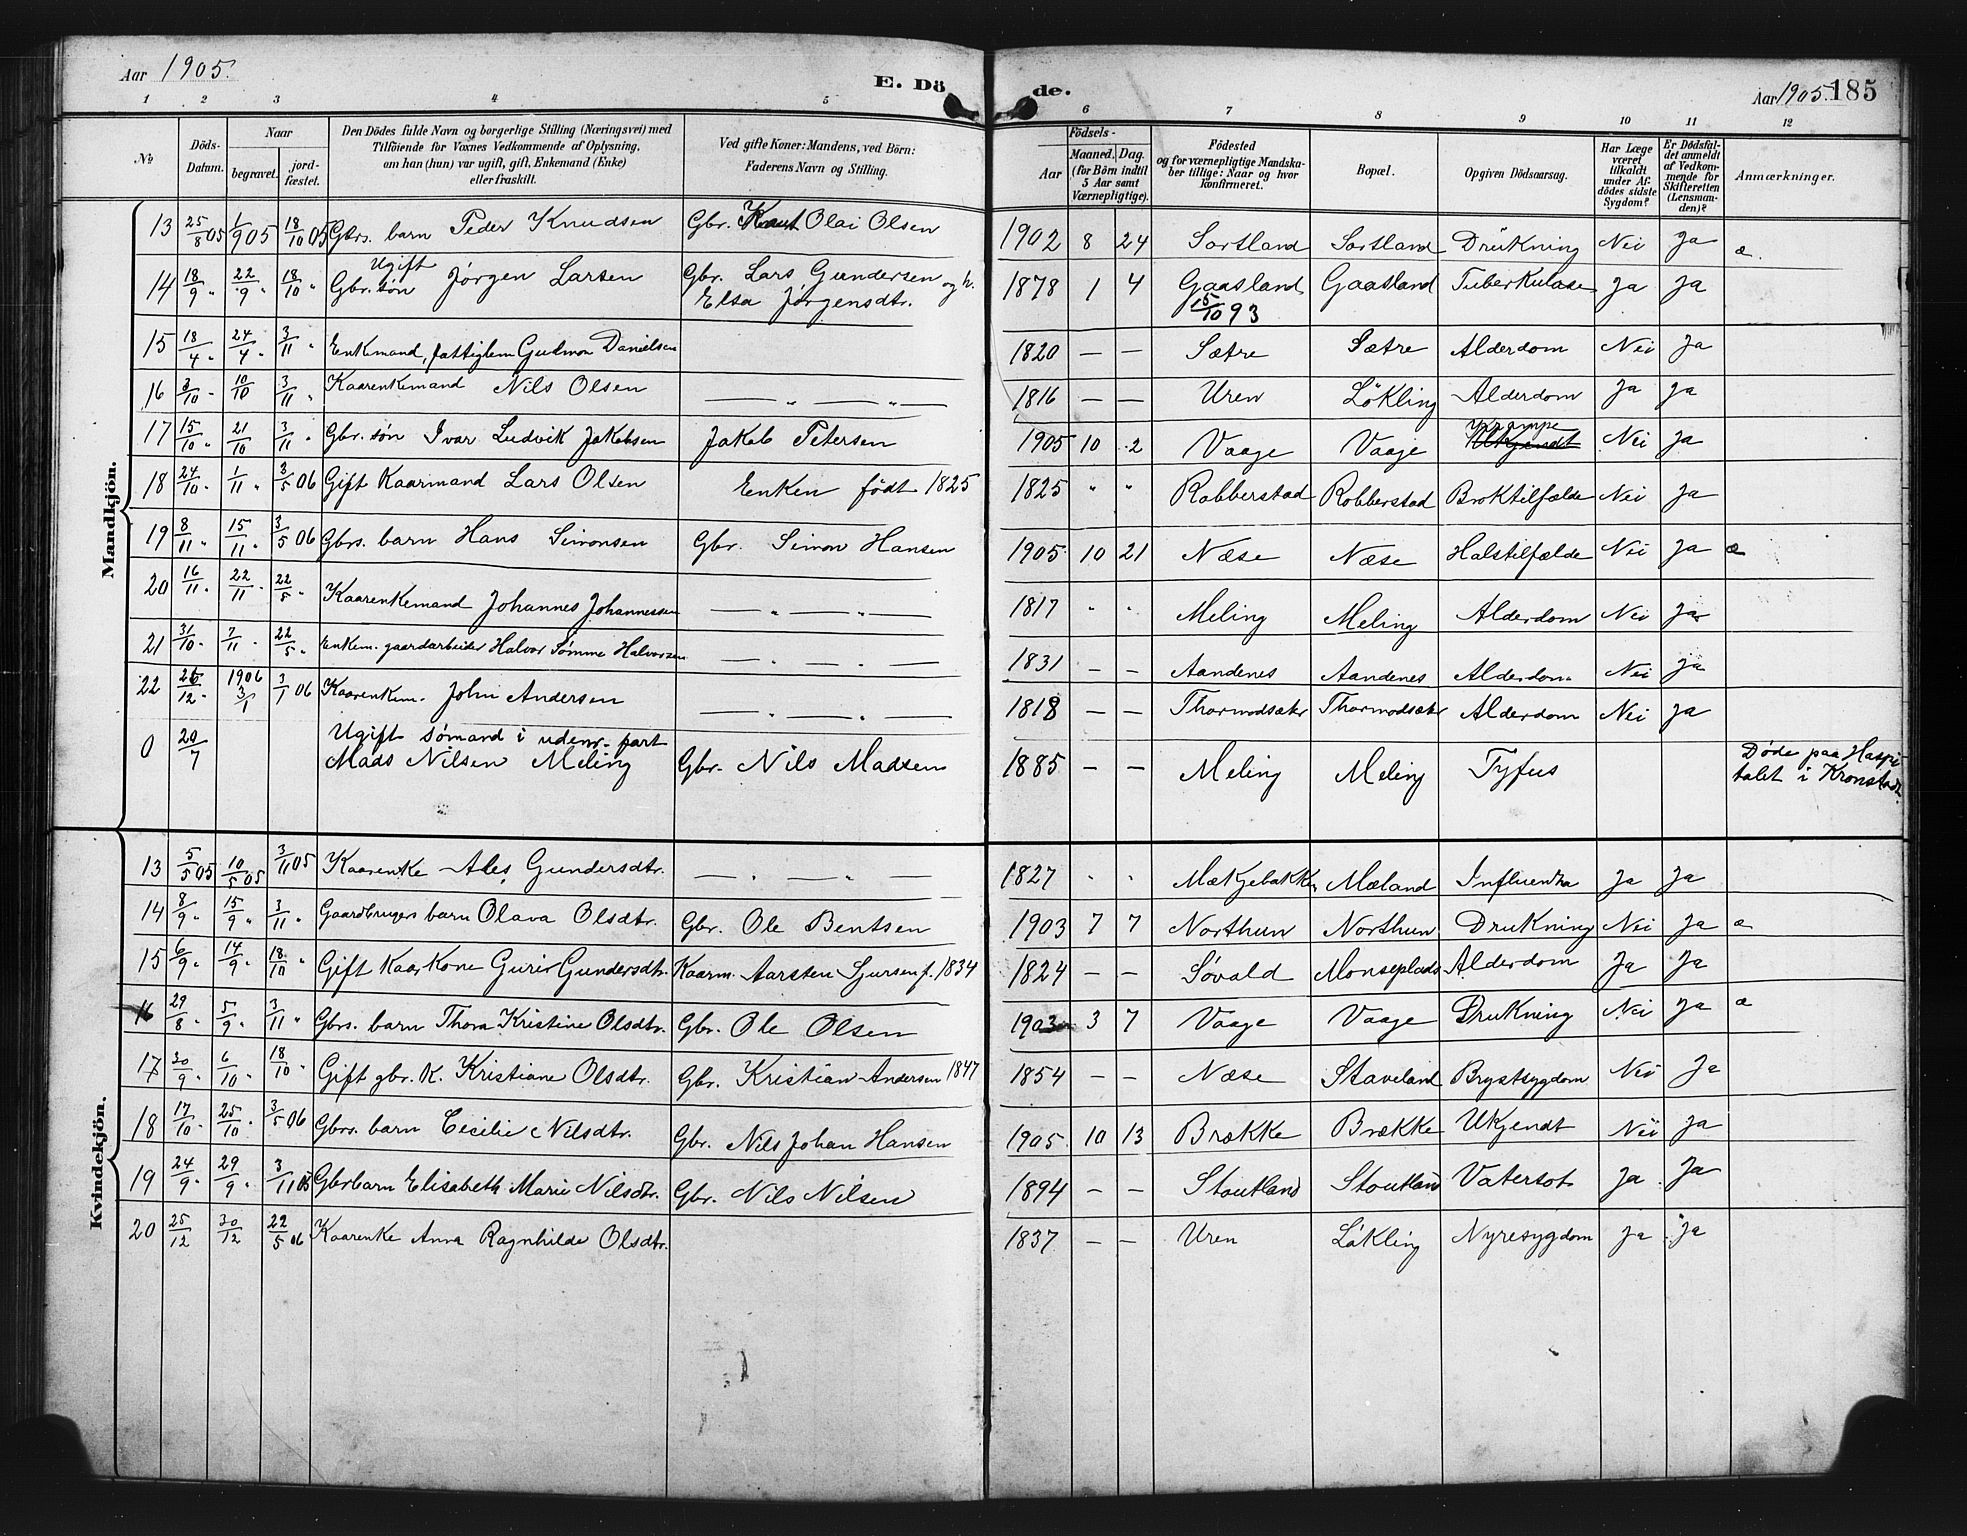 Aar 1905.
E. Dö
de.
Aar 1905. 185
1 2 3 4 5 6 7 8 9 10 11 12
№ | Döds-Datum. | Naar begravet. | jordfæstet. | Den Dödes fulde Navn og borgerlige Stilling (Næringsvei) med Tilföiende for Voxnes Vedkommende af Oplysning, om han (hun) var ugift, gift, Enkemand (Enke) eller fraskilt. | Ved gifte Koner: Mandens, ved Börn: Faderens Navn og Stilling. | Födsels- Aar | Maaned. Dag. (for Börn indtil 5 Aar samt Værnepligtige). | Födested og for værnepligtige Mandskaber tillige: Naar og hvor konfirmeret. | Bopæl. | Opgiven Dödsaarsag. | Har Læge været tilkaldt under Afdödes sidste Sygdom? | Er Dödsfaldet anmeldt af Vedkommende for Skifteretten (Lensmanden)? | Anmærkninger.
Mandkjön.
13 25/8 05 1/9 05 18/10 05 Gbrs. barn Peder Knudsen Gbr. Knut Olai Olsen 1902 8 24 Sortland Sortland Drukning Nei Ja æ.
14 18/9 " 22/9 " 18/10 " Ugift Gbr. søn Jørgen Larsen Gbr. Lars Gundersen og h. Elsa Jørgensdtr. 1878 1 4 Gaasland 15/10 93 Gaasland Tuberkulose Ja Ja
15 18/4 " 24/4 " 3/11 " Enkemand, fattiglem Gudmon Danielsen 1820 — — Sætre Sætre Alderdom Nei Ja
16 3/10 " 10/10 3/11 " Kaarenkemand Nils Olsen — " — " — 1816 — — Uren Løkling Alderdom Ja Ja
17 15/10 " 21/10 3/11 " Gbr. søn Ivar Ludvik Jakobsen Jakob Petersen 1905 10 2 Vaage Vaage Ukjendt Nei Ja
18 24/10 " 1/11 " 3/5 06 Gift Kaarmand Lars Olsen Enken født 1825 1825 " " Robberstad Robberstad Broktilfælde Nei Ja
19 8/11 " 15/11 " 3/5 06 Gbrs. barn Hans Simonsen Gbr. Simon Hansen 1905 10 21 Næse Næse Halstilfælde Nei Ja æ
20 16/11 " 22/11 " 22/5 " Kaarenkemand Johannes Johannessen — " — " — 1817 " " Meling Meling Alderdom Nei Ja
21 31/10 " 7/11 " 22/5 " Enkem. gaardarbeider Halvor Sømme Halvorsen — " — " — 1831 — — Aandenes Aandenes Alderdom Nei ja
22 26/12 " 1906 3/1 3/1 06 Kaarenkem. John Andersen — " — " — 1818 — — Thormodsæter Thormodsæter Alderdom Nei Ja
0 20/7 Ugift sømand i udenr. fart Mads Nilsen Meling Gbr. Nils Madsen 1885 — — Meling Meling Tyfus Døde paa Hospitalet i Kronstadt.
Kvindekjön.
13 5/5 05 10/5 05 3/11 05 Kaarenke Ales Gundersdtr. — " — " — 1827 " " Mækjebakken Mæland Influentza Ja Ja
14 8/9 " 15/9 " 3/11 " Gaardbrugers barn Olava Olsdtr. Gbr. Ole Bentsen 1903 7 7 Northun Northun Drukning Nei Ja æ
15 6/9 " 14/9 " 18/10 " Gift Kaarkone Guri Gundersdtr. Kaarm. Aarsten Sjursen f. 1834 1824 — — Søvald Monseplads Alderdom Ja Ja
16 29/8 " 5/9 " 3/11 " Gbrs. barn Thora Kristine Olsdtr. Gbr. Ole Olsen 1903 3 7 Vaage Vaage Drukning Nei Ja æ
17 30/9 " 6/10 " 18/10 " Gift gbr. k. Kristiane Olsdtr. Gbr. Kristian Andersen 1847 1854 — — Næse Staveland Brystsygdom Nei Ja
18 17/10 " 25/10 " 3/5 06 Gbrs. barn Cecilie Nilsdtr. Gbr. Nils Johan Hansen 1905 10 13 Brække Brække Ukjendt Nei Ja
19 24/9 " 29/9 " 3/11 05 Gbrbarn Elisabeth Marie Nilsdtr. Gbr. Nils Nilsen 1894 — — Stoutland Stoutland Vatersot Ja Ja
20 25/12 30/12 22/5 06 Kaarenke Anna Ragnhilde Olsdtr. 1837 — — Uren Løkling Nyresygdom Ja Ja